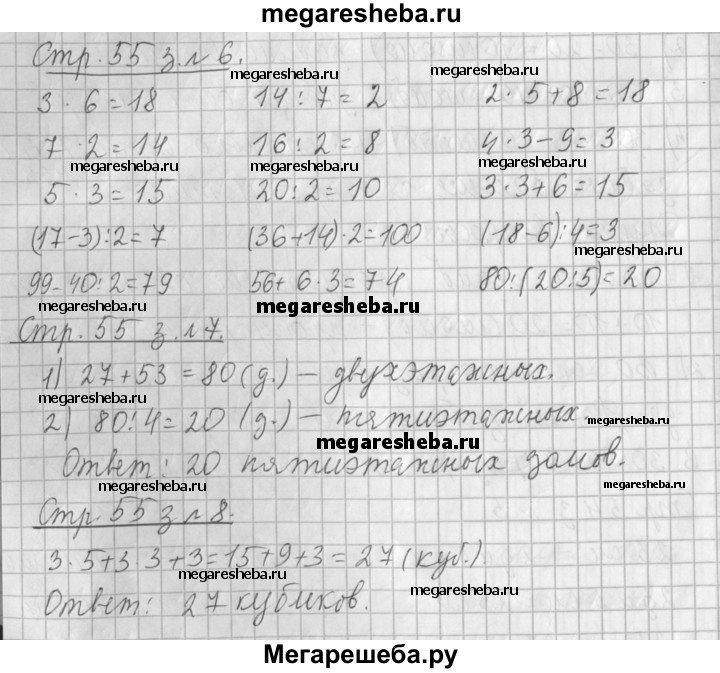 megaresheba.ru
Стр. 55 з. № 6.
megaresheba.ru megaresheba.ru
3 · 6 = 18 14 : 7 = 2 2 · 5 + 8 = 18
7 · 2 = 14 16 : 2 = 8 4 · 3 - 9 = 3
megaresheba.ru megaresheba.ru megaresheba.ru
5 · 3 = 15 20 : 2 = 10 3 · 3 + 6 = 15
(17 - 3) : 2 = 7 (36 + 14) · 2 = 100 (18 - 6) : 4 = 3
megaresheba.ru
99 - 40 : 2 = 79 56 + 6 · 3 = 74 80 : (20 : 5) = 20
megaresheba.ru megaresheba.ru
Стр. 55 з. № 7.
1) 27 + 53 = 80 (д.) – двухэтажных.
megaresheba.ru
2) 80 : 4 = 20 (д.) – пятиэтажных.
megaresheba.ru
megaresheba.ru
Ответ: 20 пятиэтажных домов.
megaresheba.ru megaresheba.ru
Стр. 55 з № 8.
3 · 5 + 3 · 3 + 3 = 15 + 9 + 3 = 27 (куб.)
megaresheba.ru megaresheba.ru
Ответ: 27 кубиков.
Мегарешеба.ру